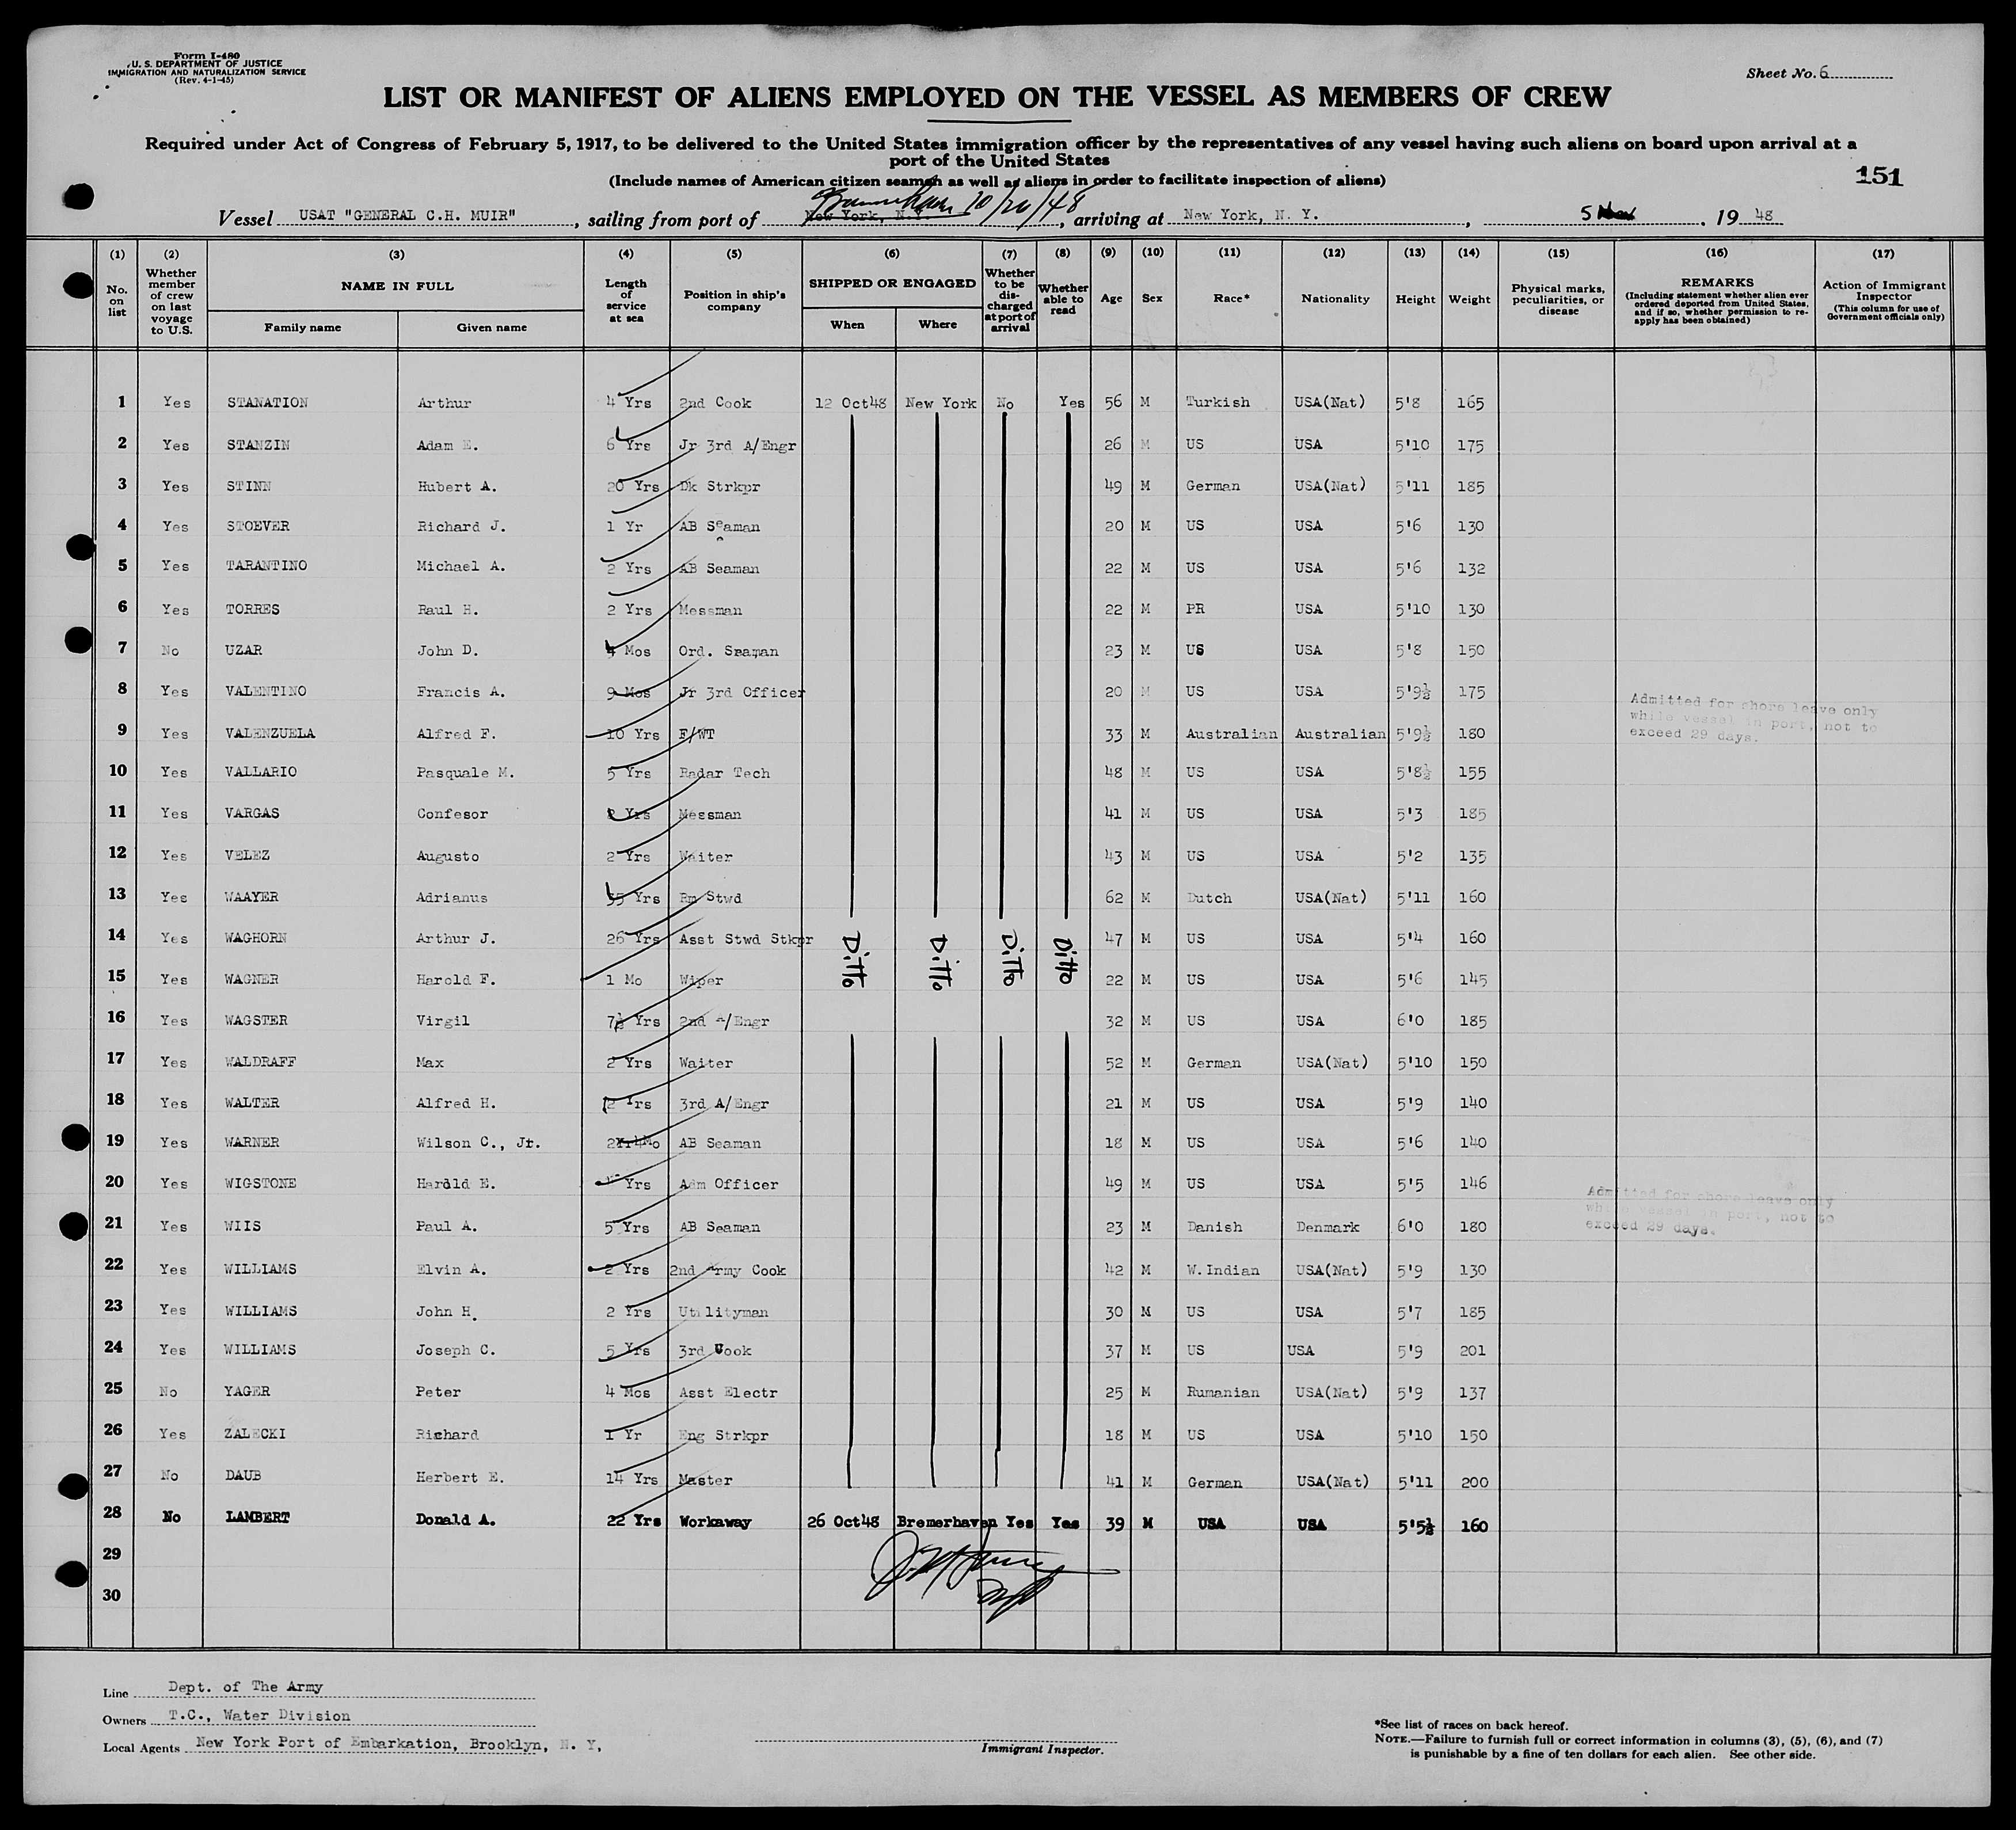 Form I-480
U. S. DEPARTMENT OF JUSTICE
IMMIGRATION AND NATURALIZATION SERVICE
(Rev. 4-1-45)
Sheet No. 6
LIST OR MANIFEST OF ALIENS EMPLOYED ON THE VESSEL AS MEMBERS OF CREW
Required under Act of Congress of February 5, 1917, to be delivered to the United States immigration officer by the representatives of any vessel having such aliens on board upon arrival at a
port of the United States
(Include names of American citizen seamen as well as aliens in order to facilitate inspection of aliens)
151
Vessel USAT "GENERAL C.H. MUIR", sailing from port of New York, N.Y. 10/26/48, arriving at New York, N. Y., 5 Nov, 19 48
(1) (2) (3) (4) (5) (6) (7) (8) (9) (10) (11) (12) (13) (14) (15) (16) (17)
No. on list
Whether member of crew on last voyage to U.S.
NAME IN FULL
Family name Given name
Length of service at sea
Position in ship's company
SHIPPED OR ENGAGED
When Where
Whether to be discharged at port of arrival
Whether able to read
Age Sex Race* Nationality Height Weight
Physical marks, peculiarities, or disease
REMARKS
(Including statement whether alien ever ordered deported from United States, and if so, whether permission to re-apply has been obtained)
Action of Immigrant Inspector
(This column for use of Government officials only)
1 Yes STANATION Arthur 4 Yrs 2nd Cook 12 Oct48 New York No Yes 56 M Turkish USA(Nat) 5'8 165
2 Yes STANZIN Adam E. 6 Yrs Jr 3rd A/Engr 26 M US USA 5'10 175
3 Yes STINN Hubert A. 20 Yrs Dk Strkpr 49 M German USA(Nat) 5'11 185
4 Yes STOEVER Richard J. 1 Yr AB Seaman 20 M US USA 5'6 130
5 Yes TARANTINO Michael A. 2 Yrs AB Seaman 22 M US USA 5'6 132
6 Yes TORRES Raul H. 2 Yrs Messman 22 M PR USA 5'10 130
7 No UZAR John D. 4 Mos Ord. Seaman 23 M US USA 5'8 150
8 Yes VALENTINO Francis A. 9 Mos Jr 3rd Officer 20 M US USA 5'9½ 175
9 Yes VALENZUELA Alfred F. 10 Yrs F/WT 33 M Australian Australian 5'9½ 180
Admitted for shore leave only
while vessel in port, not to
exceed 29 days.
10 Yes VALLARIO Pasquale M. 5 Yrs Radar Tech 48 M US USA 5'8½ 155
11 Yes VARGAS Confesor 2 Yrs Messman 41 M US USA 5'3 185
12 Yes VELEZ Augusto 2 Yrs Waiter 43 M US USA 5'2 135
13 Yes WAAYER Adrianus 35 Yrs Rm Stwd 62 M Dutch USA(Nat) 5'11 160
14 Yes WAGHORN Arthur J. 26 Yrs Asst Stwd Stkpr Ditto Ditto Ditto Ditto 47 M US USA 5'4 160
15 Yes WAGNER Harold F. 1 Mo Wiper 22 M US USA 5'6 145
16 Yes WAGSTER Virgil 7½ Yrs 2nd A/Engr 32 M US USA 6'0 185
17 Yes WALDRAFF Max 2 Yrs Waiter 52 M German USA(Nat) 5'10 150
18 Yes WALTER Alfred H. 2 Yrs 3rd A/Engr 21 M US USA 5'9 140
19 Yes WARNER Wilson C., Jr. 2Yr4Mo AB Seaman 18 M US USA 5'6 140
20 Yes WIGSTONE Harold E. Yrs Adm Officer 49 M US USA 5'5 146
21 Yes WIIS Paul A. 5 Yrs AB Seaman 23 M Danish Denmark 6'0 180
Admitted for shore leave only
while vessel in port, not to
exceed 29 days.
22 Yes WILLIAMS Elvin A. 2 Yrs 2nd Army Cook 42 M W.Indian USA(Nat) 5'9 130
23 Yes WILLIAMS John H. 2 Yrs Utilityman 30 M US USA 5'7 185
24 Yes WILLIAMS Joseph C. 5 Yrs 3rd Cook 37 M US USA 5'9 201
25 No YAGER Peter 4 Mos Asst Electr 25 M Rumanian USA(Nat) 5'9 137
26 Yes ZALECKI Richard 1 Yr Eng Strkpr 18 M US USA 5'10 150
27 No DAUB Herbert E. 14 Yrs Master 41 M German USA(Nat) 5'11 200
28 No LAMBERT Donald A. 22 Yrs Workaway 26 Oct48 Bremerhaven Yes Yes 39 M USA USA 5'5½ 160
29
30
Line Dept. of The Army
Owners T.C., Water Division
Local Agents New York Port of Embarkation, Brooklyn, N. Y.
Immigrant Inspector.
*See list of races on back hereof.
NOTE.—Failure to furnish full or correct information in columns (3), (5), (6), and (7)
is punishable by a fine of ten dollars for each alien. See other side.